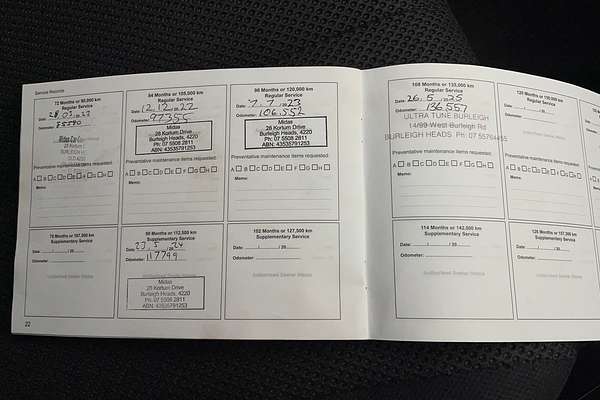 Service Records
72 Months or 90,000 km
Regular Service
Date:
Odometer:
Midas
Preventative maintenance items requested:
A B C D E F G H
Memo:
84 Months or 105,000 km
Regular Service
Date: 12.12.2022
Odometer: 97355
Midas
28 Kortum Drive
Burleigh Heads, 4220
Ph: 07 5508 2811
ABN: 43535791253
Preventative maintenance items requested:
A B C D E F G H
Memo:
96 Months or 120,000 km
Regular Service
Date: 7.7.2023
Odometer: 106.552
Midas
28 Kortum Drive
Burleigh Heads, 4220
Ph: 07 5508 2811
ABN: 43535791253
Preventative maintenance items requested:
A B C D E F G H
Memo:
78 Months or 97,500 km
Supplementary Service
Date: / / 20
Odometer:
Authorised Dealer Stamp
90 Months or 112,500 km
Supplementary Service
Date: 23.5.24
Odometer: 117799
Midas
28 Kortum Drive
Burleigh Heads, 4220
Ph: 07 5508 2811
ABN: 43535791253
102 Months or 127,500 km
Supplementary Service
Date: / / 20
Odometer:
Authorised Dealer Stamp
22
108 Months or 135,000 km
Regular Service
Date: 26.5.2025
Odometer: 136557
ULTRA TUNE BURLEIGH
14/89 West Burleigh Rd
BURLEIGH HEADS Ph: 07 55764455
Preventative maintenance items requested:
A B C D E F G H
Memo:
120 Months or 150,000 km
Regular Service
Date: / / 20
Odometer:
Preventative maintenance items requested:
A B C D E F G H
Memo:
114 Months or 142,500 km
Supplementary Service
Date: / / 20
Odometer:
Authorised Dealer Stamp
126 Months or 157,500 km
Supplementary Service
Date: / / 20
Odometer: